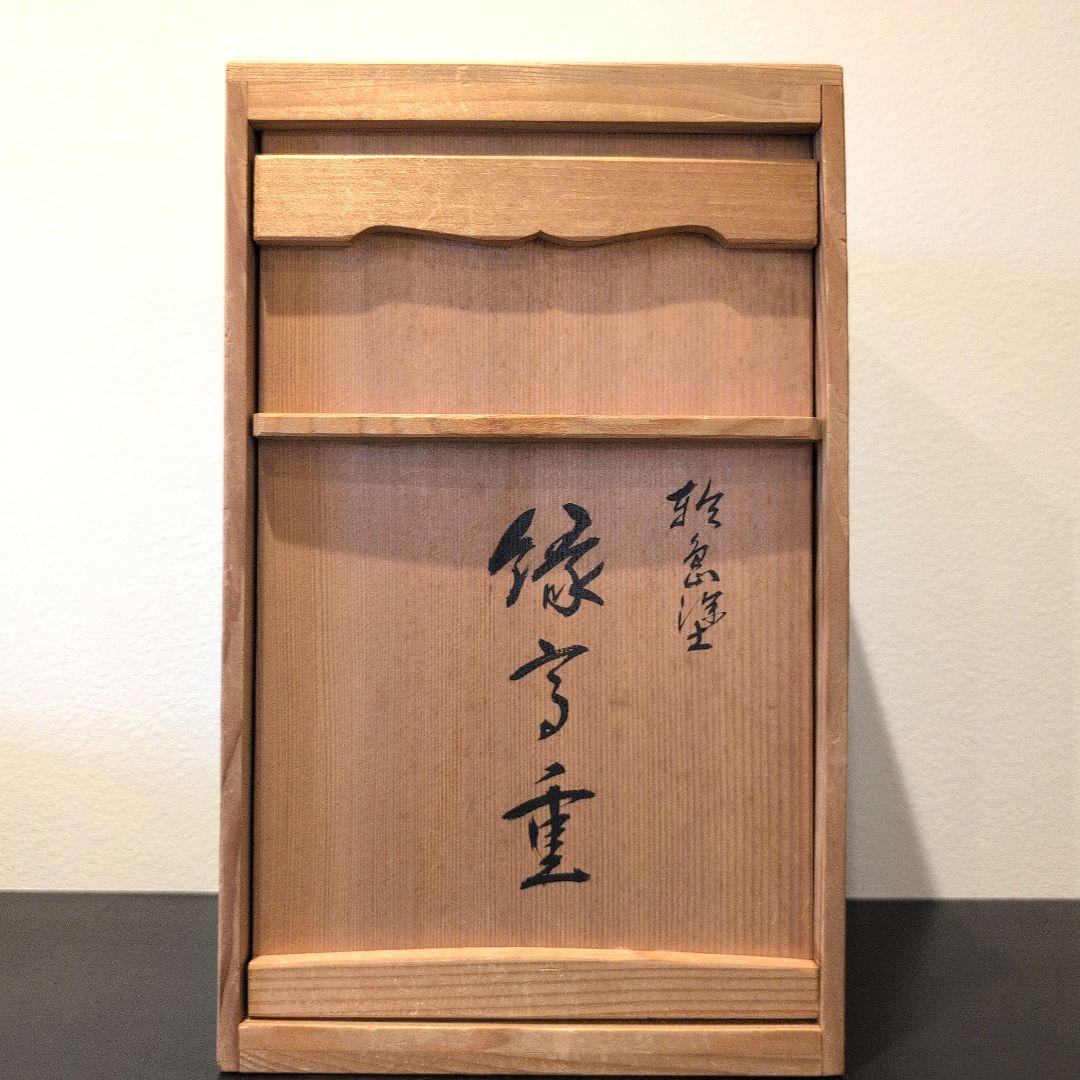 輪島塗
縁高重